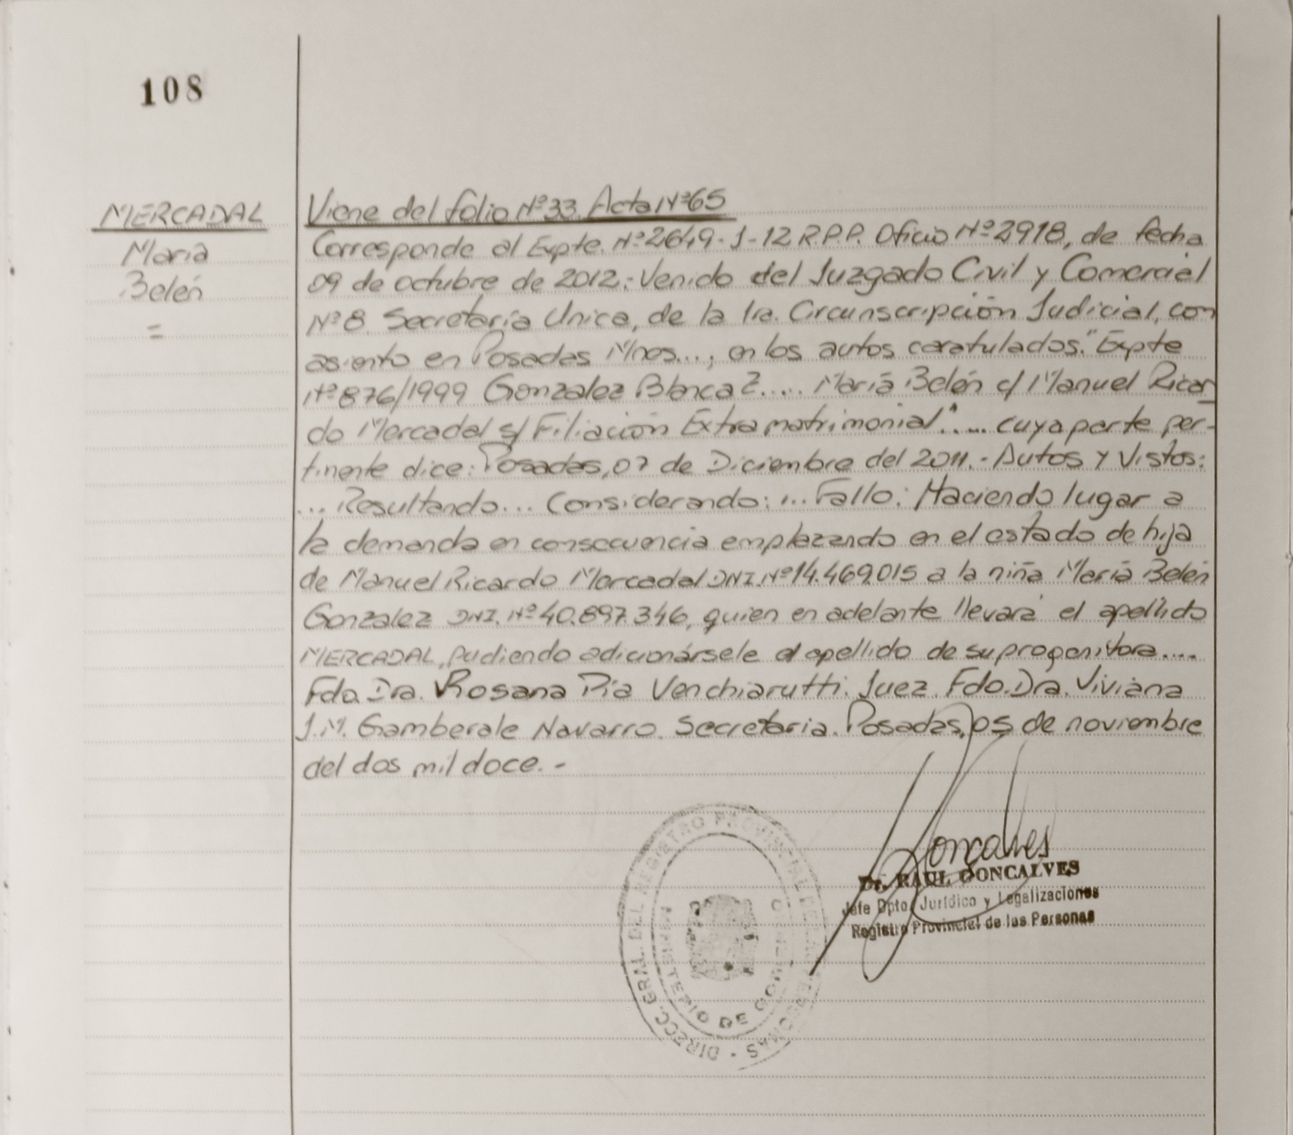 108
MERCADAL
María
Belén
=
Viene del folio Nº33. Acta Nº65
Corresponde al Expte. Nº2649-J-12 R.P.P. Oficio Nº2918, de fecha
09 de octubre de 2012: Venido del Juzgado Civil y Comercial
Nº8. Secretaría Unica, de la 1ra. Circunscripción Judicial, con
asiento en Posadas Mnes..., en los autos caratulados: "Expte
Nº876/1999 Gonzalez Blanca Z.... María Belén c/ Manuel Ricar
do Mercadal s/ Filiación Extramatrimonial"..... cuya parte per-
tinente dice: Posadas, 07 de Diciembre del 2011.- Autos y Vistos:
... Resultando... Considerando: ... Fallo: Haciendo lugar a
la demanda en consecuencia emplazando en el estado de hija
de Manuel Ricardo Mercadal DNI. Nº14.469.015 a la niña María Belén
Gonzalez DNI. Nº 40.897.346, quien en adelante llevará el apellido
MERCADAL, pudiendo adicionársele el apellido de su progenitora....
Fdo. Dra. Rosana Pía Venchiarutti. Juez. Fdo. Dra. Viviana
J.M. Gamberale Navarro. Secretaria. Posadas, 05 de noviembre
del dos mil doce.-
Goncalves
Dr. RAUL GONCALVES
Jefe Dpto. Jurídico y Legalizaciones
Registro Provincial de las Personas
DIRECC. GRAL. DEL REGISTRO PROVINCIAL DE LAS PERSONAS -
MINISTERIO DE GOBIERNO